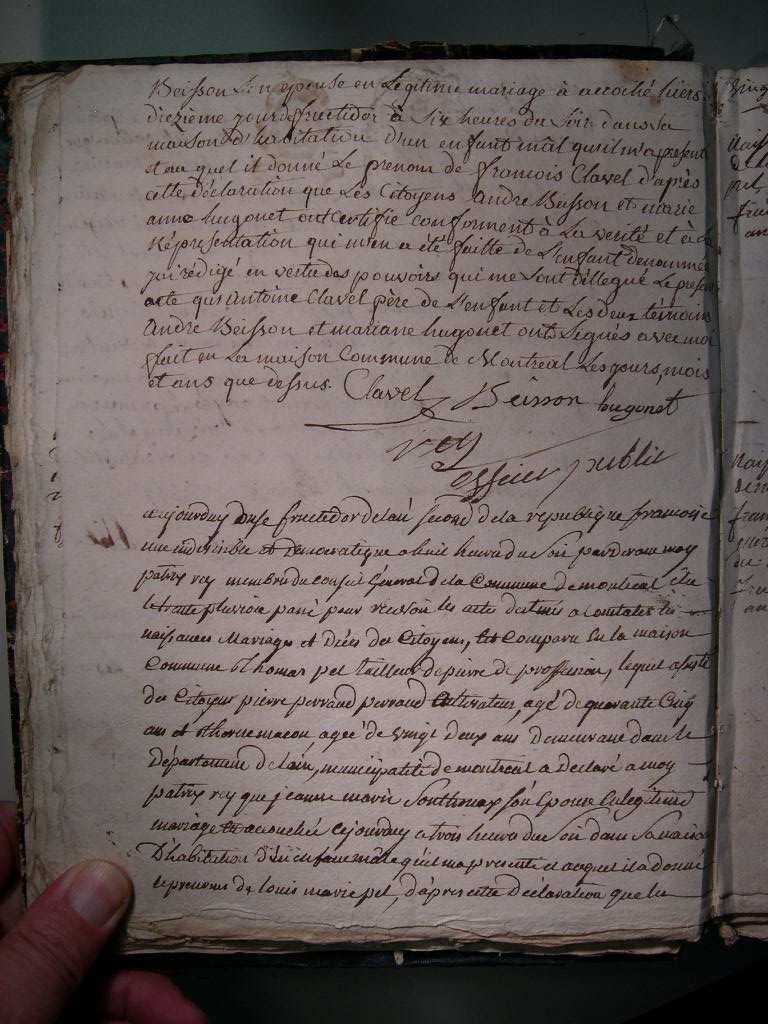 Beisson Son epouse en Legitime mariage à accoché hiers
dixzieme jour fructidor à Six heures du Soir dans sa
maison d'habitation d'un enfant mâl qu'il m'a presenté
et au quel il donné Le prenom de francois Clavel d'après
cette déclaration que Les Citoyens André Beisson et marie
anne hugonet ont Certifié conforment à La verité et à la
Répresentation qui m'en a été faitte de L'enfant denommé
jai rédigé en vertu des pouvoirs qui me Sont déllegué Le present
acte qu'Antoine Clavel père de L'enfant et Les deux témoins
André Beisson et mariane hugonet onts Signés avec moi
fait en La maison Commune de Montreal Les jours, mois
et ans que dessus. Clavel Beisson hugonet
rey
officier public
aujourduy onse fructidor de lan second de la republique francoise
une indivisible et Democratique a huit heure du Soir par devant moy
patrix rey membre du conseil General de la Commune de montreal élu
le trante pluviose passé pour recevoir les actes destinés a Constater les
naissances Mariages et Décès des Citoyens, est Comparu En la maison
Commune thomas pet tailleur de pierre de proffession, lequel assisté
du Citoyen pierre perraud Cultivateur, agé de quarante Cinq
ans et macon agée de vingt deux ans Demeurant dans le
Département de lain, municipalité de montreal a Déclaré a moy
patrix rey que jeanne marie Son Epouse En legitime
mariage est acouchée cejourduy a trois heure du Soir dans Sa maison
D'habitation d'un enfant mâle qu'il ma presenté et auquel il a donné
le prenom de louis marie pet, d'après cette Déclaration que les